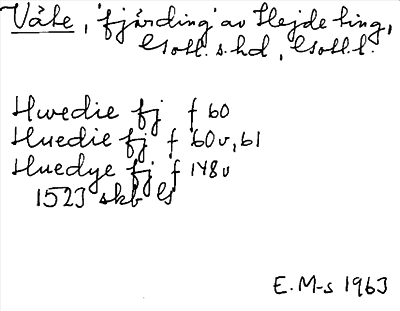 Väte, 'fjärding' av Hejde ting,
Gotl. s. hd, Gotl. l.
Hwedie fj f 60
Huedie fj f 60v, 61
Huedye fj f 148v
1523 skb G
E. M-s 1963